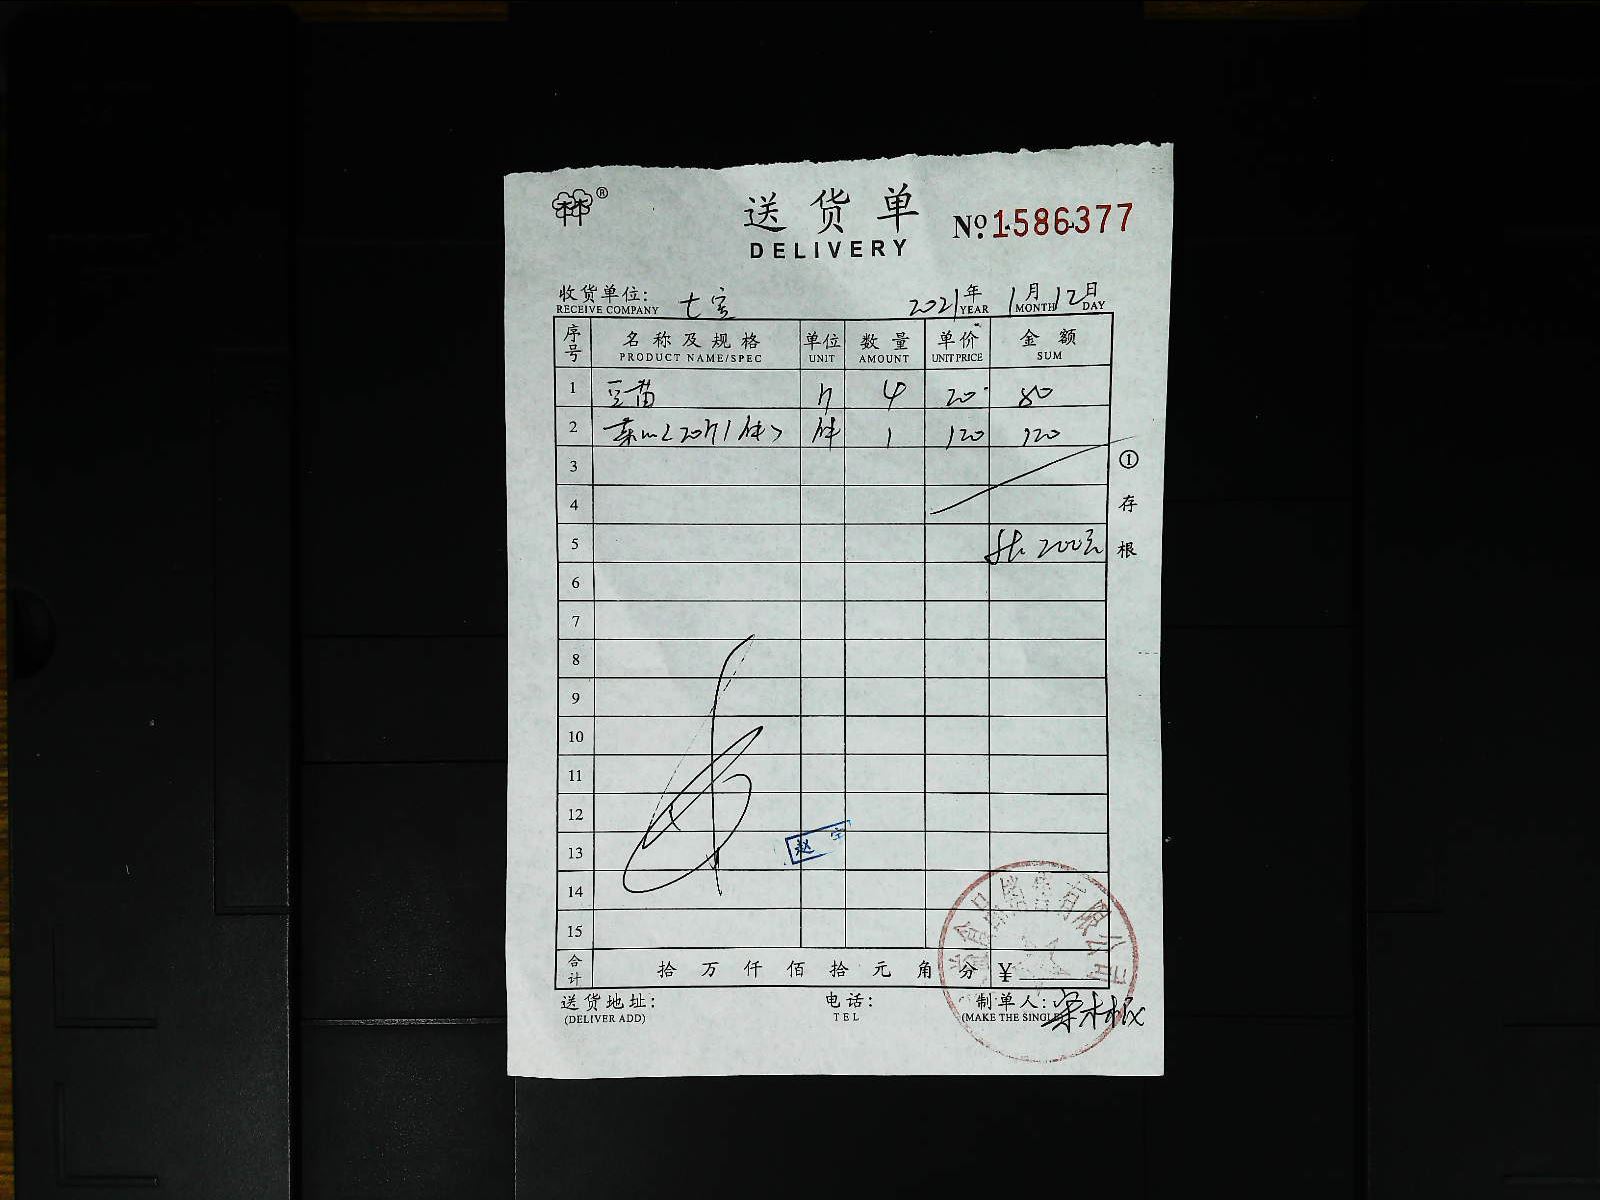 ®
送货单
DELIVERY
№:1586377
收货单位: 七宝
RECEIVE COMPANY
2021年 1月 12日
YEAR MONTH DAY
序号 名称及规格 单位 数量 单价 金额
PRODUCT NAME/SPEC UNIT AMOUNT UNIT PRICE SUM
1 豆苗 斤 4 20 80
2 菜心(20斤1件) 件 1 120 120
3
4
5 共 200元
6
7
8
9
10
11
12
13
14
15
赵
①存根
合计 拾 万 仟 佰 拾 元 角 分 ¥
食品销售有限公司
送货地址: 电话: 制单人:
(DELIVER ADD) TEL (MAKE THE SINGLE